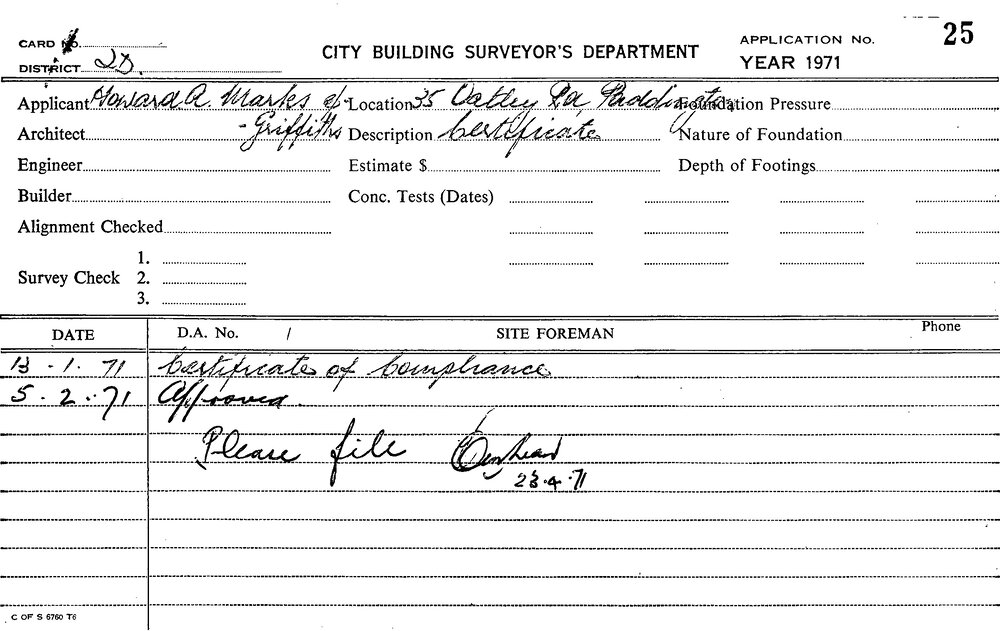 25
CARD No.
CITY BUILDING SURVEYOR'S DEPARTMENT
APPLICATION No.
DISTRICT 2D.
YEAR 1971
Applicant Howard A. Marks & Location 35 Oatley Rd Paddington Foundation Pressure
Architect - Griffiths Description Certificate Nature of Foundation
Engineer Estimate $ Depth of Footings
Builder Conc. Tests (Dates)
Alignment Checked
1.
Survey Check 2.
3.
DATE D.A. No. / SITE FOREMAN Phone
13 . 1. 71 Certificate of Compliance
5 . 2 . 71 Approved.
Please file
23.4.71
C OF S 6760 T6